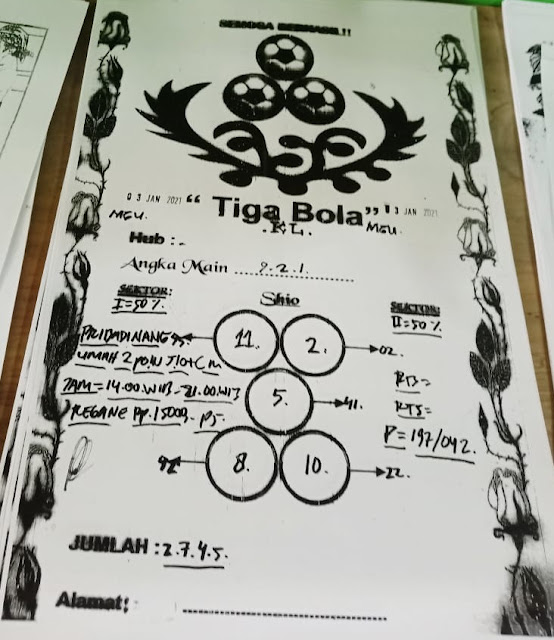 SEMOGA BERHASIL!!
03 JAN 2021 “ Tiga Bola ” 03 JAN 2021
MGU. .KL. MGU.
Hub :.
Angka Main 9.2.1.
SEKTOR: Shio SEKTOR:
I=50%. II=50%.
11. 2. 02.
UMAH 2 POIN
JAM=14.00.WIB-21.00.WIB 5. 41.
REGANE Rp.15000,-
P=197/042.
92 8. 10. 22.
JUMLAH : 2.7.4.5.
Alamat: